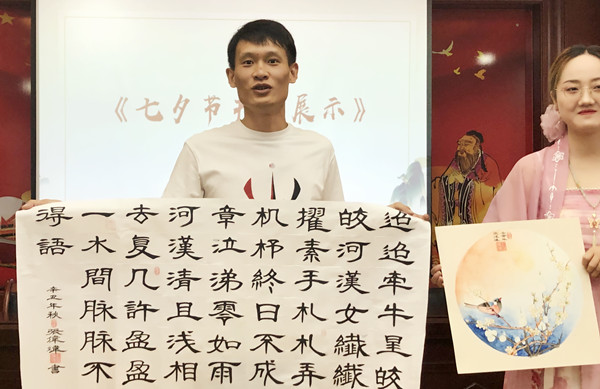 《七夕节
展示》
迢迢牵牛星皎
皎河漢女纖纖
擢素手札札弄
机杼終日不成
章泣涕零如雨
河漢清且浅相
去复几許盈盈
一水間脉脉不
得語
辛丑年秋
書